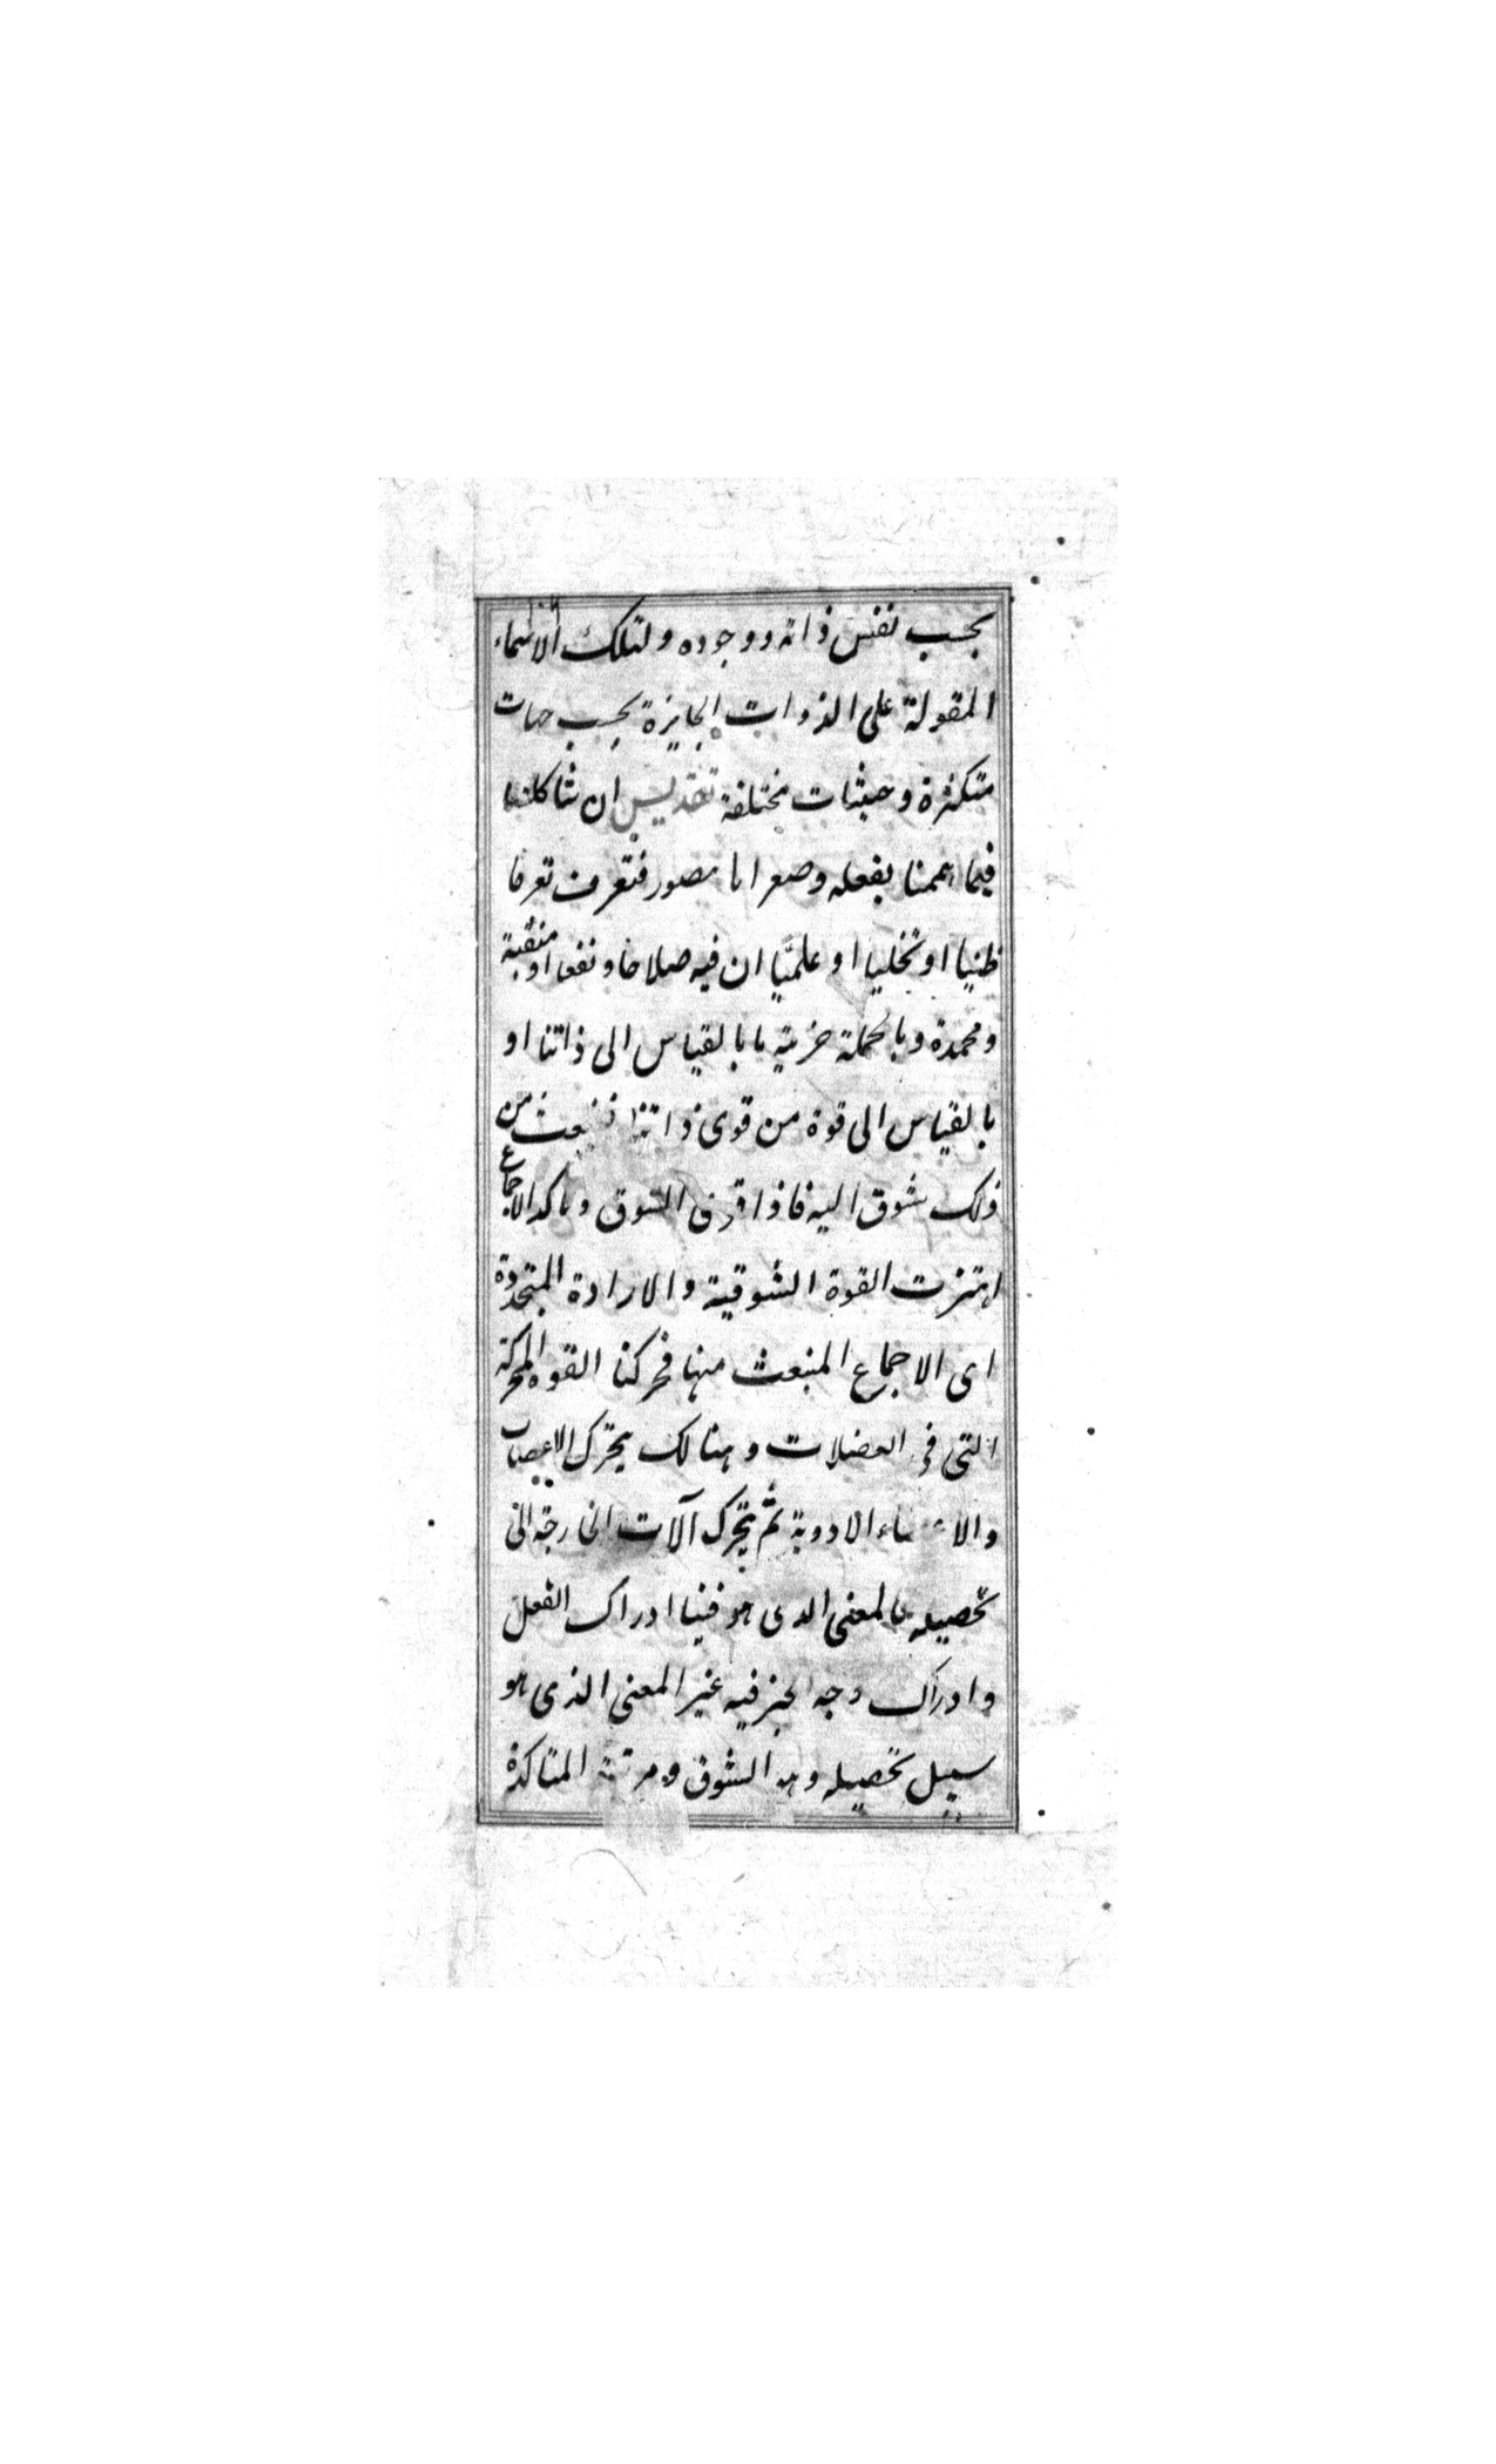 بحسب نفس ذاته ووجوده ولتلك الاسماء
المقولة على الذوات الجايزة بحسب جهات
متكثرة وحيثيات مختلفة تقديس ان شاكلتنا
فيما اهممنا بفعله نتصور فنتعرف تعرفا
ظنيا او تخليا او علميا ان فيه صلاحا ونفعا او منقبة
ومحمدة وبالجملة خرية ما بالقياس الى ذاتنا او
بالقياس الى قوة من قوى ذاتنا فينبعث من
ذلك شوق اليه فاذا الشوق وتاكد الاجماع
اهتزت القوة الشوقية والارادة المتجددة
اى الاجماع المنبعث منها فحركنا القوه المحركة
التى فى العضلات وهنالك يتحرك الاعصاب
والاعضاء الادوية ثم يتحرك آلات الخارجة الى
تحصيله فالمعنى الذى هو فينا ادراك الفعل
وادراك وجه الخير فيه غير المعنى الذى هو
سبيل تحصيله وهو الشوق ومرتبته المتاكدة